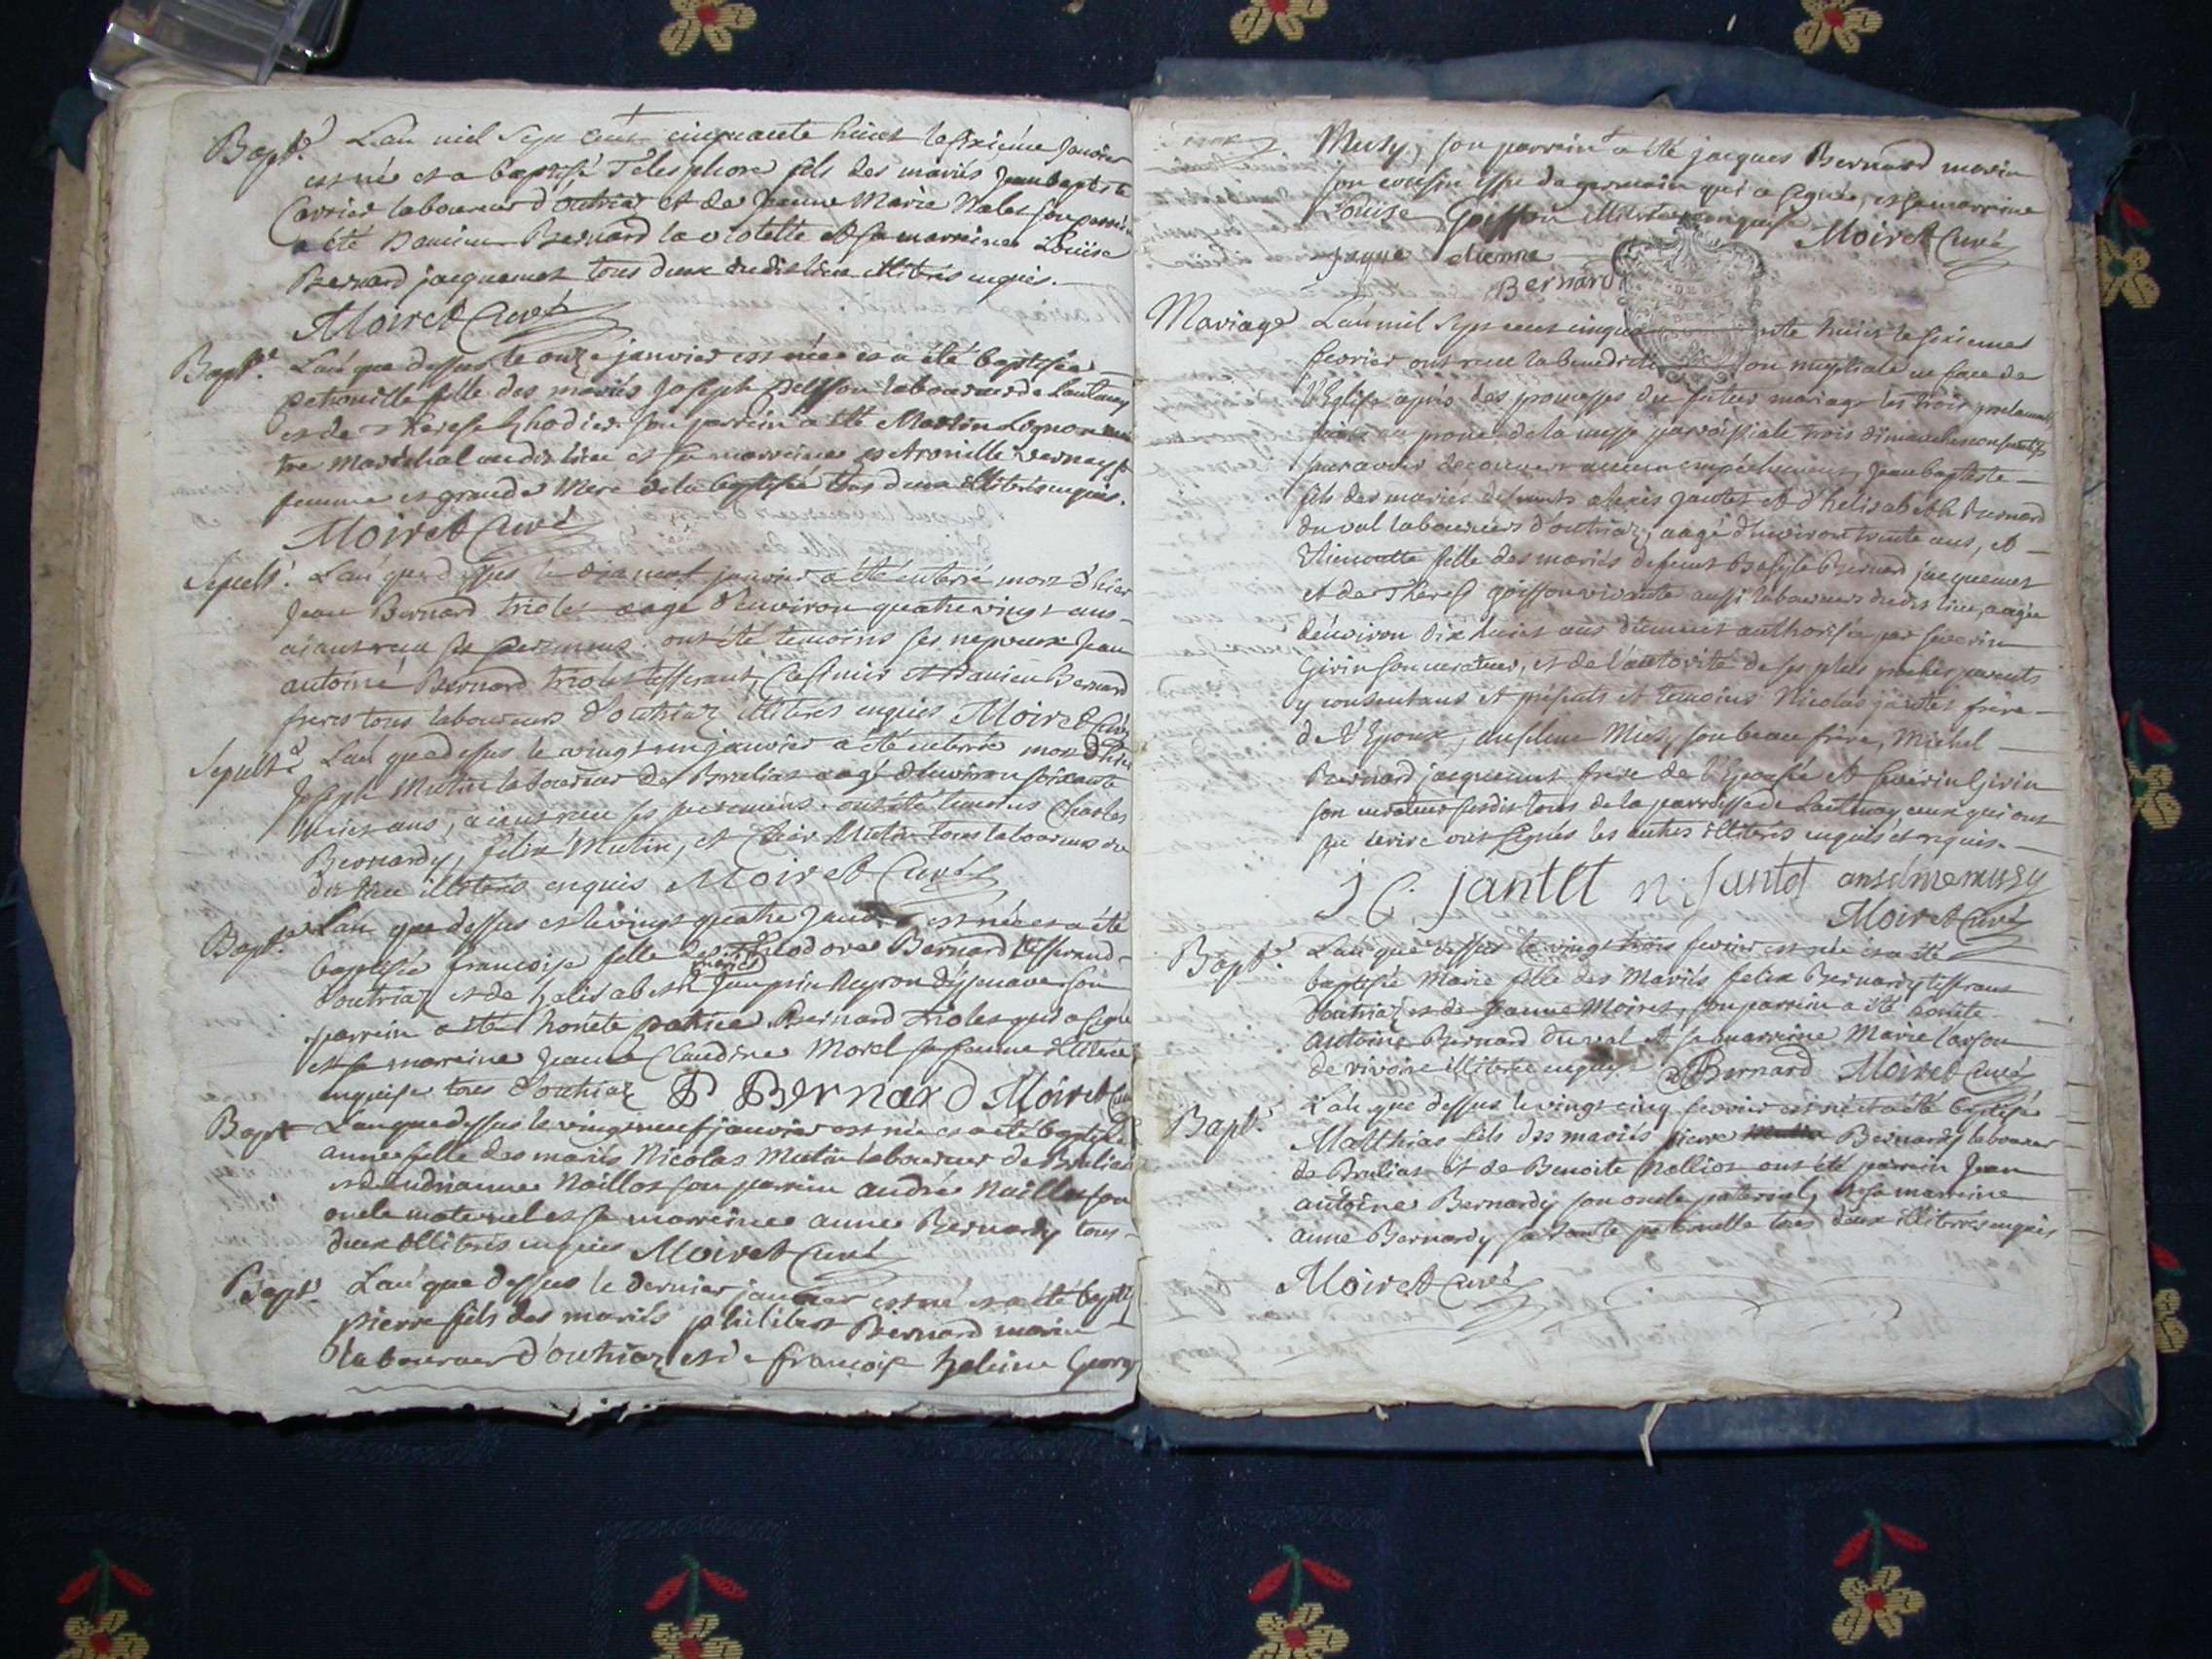 Bapt.e L'an mil sept cent cinquante huict le sixiéme Janvier
est né et a baptisé Telesphore fils des mariés Jean baptiste
Carrier laboureur d'outriaz et de Jeanne Marie Nalet son parrein
a été Damien Bernard la violette et sa marreine Loüise
Bernard jacquemet tous deux dudis lieu illiterés enquis.
Moiret Curé
Bapt.e L'an que dessus le onze janvier est née et a été baptisée
petronille fille des mariés Joseph laboureur de Lantenay
et de Therese Rhodier son parrein a été Martin
tre Maréchal audit lieu et sa marreine petronille
femme et grande Mere de la baptisée tous deux illiterés enquis.
Moiret Curé
Sepult.e L'an que dessus le dix neuf janvier a été enterré mort d'hier
Jean Bernard triolet aagé d'environ quatre vingt ans
aiant receu ses sacremens ont été temoins ses nepveux Jean
antoine Bernard triolet tisserant, Casimir et Damien Bernard
freres tous laboureurs d'outriaz illiterés enquis Moiret Curé
Sepult.e L'an que dessus le vingt un janvier a été enterré mort d'hier
Joseph Mutin laboureur de Brulias aagé d'environ soixante
huict ans, aiant receu ses sacremens. ont été temoins Charles
Bernardy, felix Mutin, et Mutin tous laboureurs du
dit lieu illiterés enquis Moiret Curé
Bapt.e L'an que dessus et le vingt quatre Janvier est née et a été
baptisée francoise fille des mariés Theodore Bernard tisserand
d'outriaz et de helisabeth Neyron son
parrein a été honête patrice Bernard triolet qui a signé
et sa marreine Jeanne Claudine Morel sa femme illiterée
enquise tous d'outriaz P Bernard Moiret Curé
Bapt L'an que dessus le vingt neuf janvier est née et a été baptisée
anne fille des mariés Nicolas Mutin laboureur de Brulias
et d'andrianne Naillot son parrein andré Naillot son
oncle maternel et sa marreine anne Bernardy tous
deux illiterés enquis Moiret Curé
Bapt.e L'an que dessus le dernier janvier est né et a été baptisé
pierre fils des mariés philibert Bernard marin
laboureur d'outriaz et de francoise heleine
Musy, son parrein a été jacques Bernard marin
son cousin issu de germain qui a signé, et sa marreine
Loüise Goisson illiterée enquise Moiret Curé
Jaque etienne
Bernard
Mariage L'an mil sept cent cinquante huict le sixiemes
fevrier ont receu la benediction nuptiale en face de
l'Eglise après des promesses du futur mariage les trois proclamations
faites au prone de la messe parroissiale trois dimanches consecutifs
sans avoir decouvert aucun empêchement, Jean baptiste
fils des mariés defunts alexis jantet et d'helisabeth Bernard
du val laboureurs d'outriaz, aagé d'environ trente ans, et
fille des mariés defunt Basile Bernard jacquemet
et de Therese goisson vivante aussi laboureurs dudit lieu, aagée
d'environ dix huict ans dûement authorisée par severin
Girin son curateur, et de l'autorité de ses plus proches parents
y consentans et présents et temoins Nicolas jantet frere
de l'Epoux, anselme Musy son beau frere, Michel
Bernard jacquemet frere de l'Epousée et Severin Girin
son curateur susdit tous de la parroisse de Lantenay, ceux qui ont
sçu ecrire ont signés les autres illiterés enquis et requis.
J C. jantet n: Jantet anselme musy
Moiret Curé
Bapt.e L'an que dessus le vingt trois fevrier est née et a été
baptisée Marie fille des Mariés felix Bernardy tisserant
d'outriaz et de Jeanne Moiret, son parrein a été honête
antoine Bernard du val et sa marreine Marie
de vivoire illiterée enquise A Bernard Moiret Curé
Bapt.e L'an que dessus le vingt cinq fevrier est né et a été baptisé
Matthias fils des mariés pierre Bernardy laboureur
de Brulias et de Benoite Nallios ont été parrein Jean
antoine Bernardy son oncle paternel, et sa marreine
anne Bernardy sa tante paternelle tous deux illiterés enquis
Moiret Curé